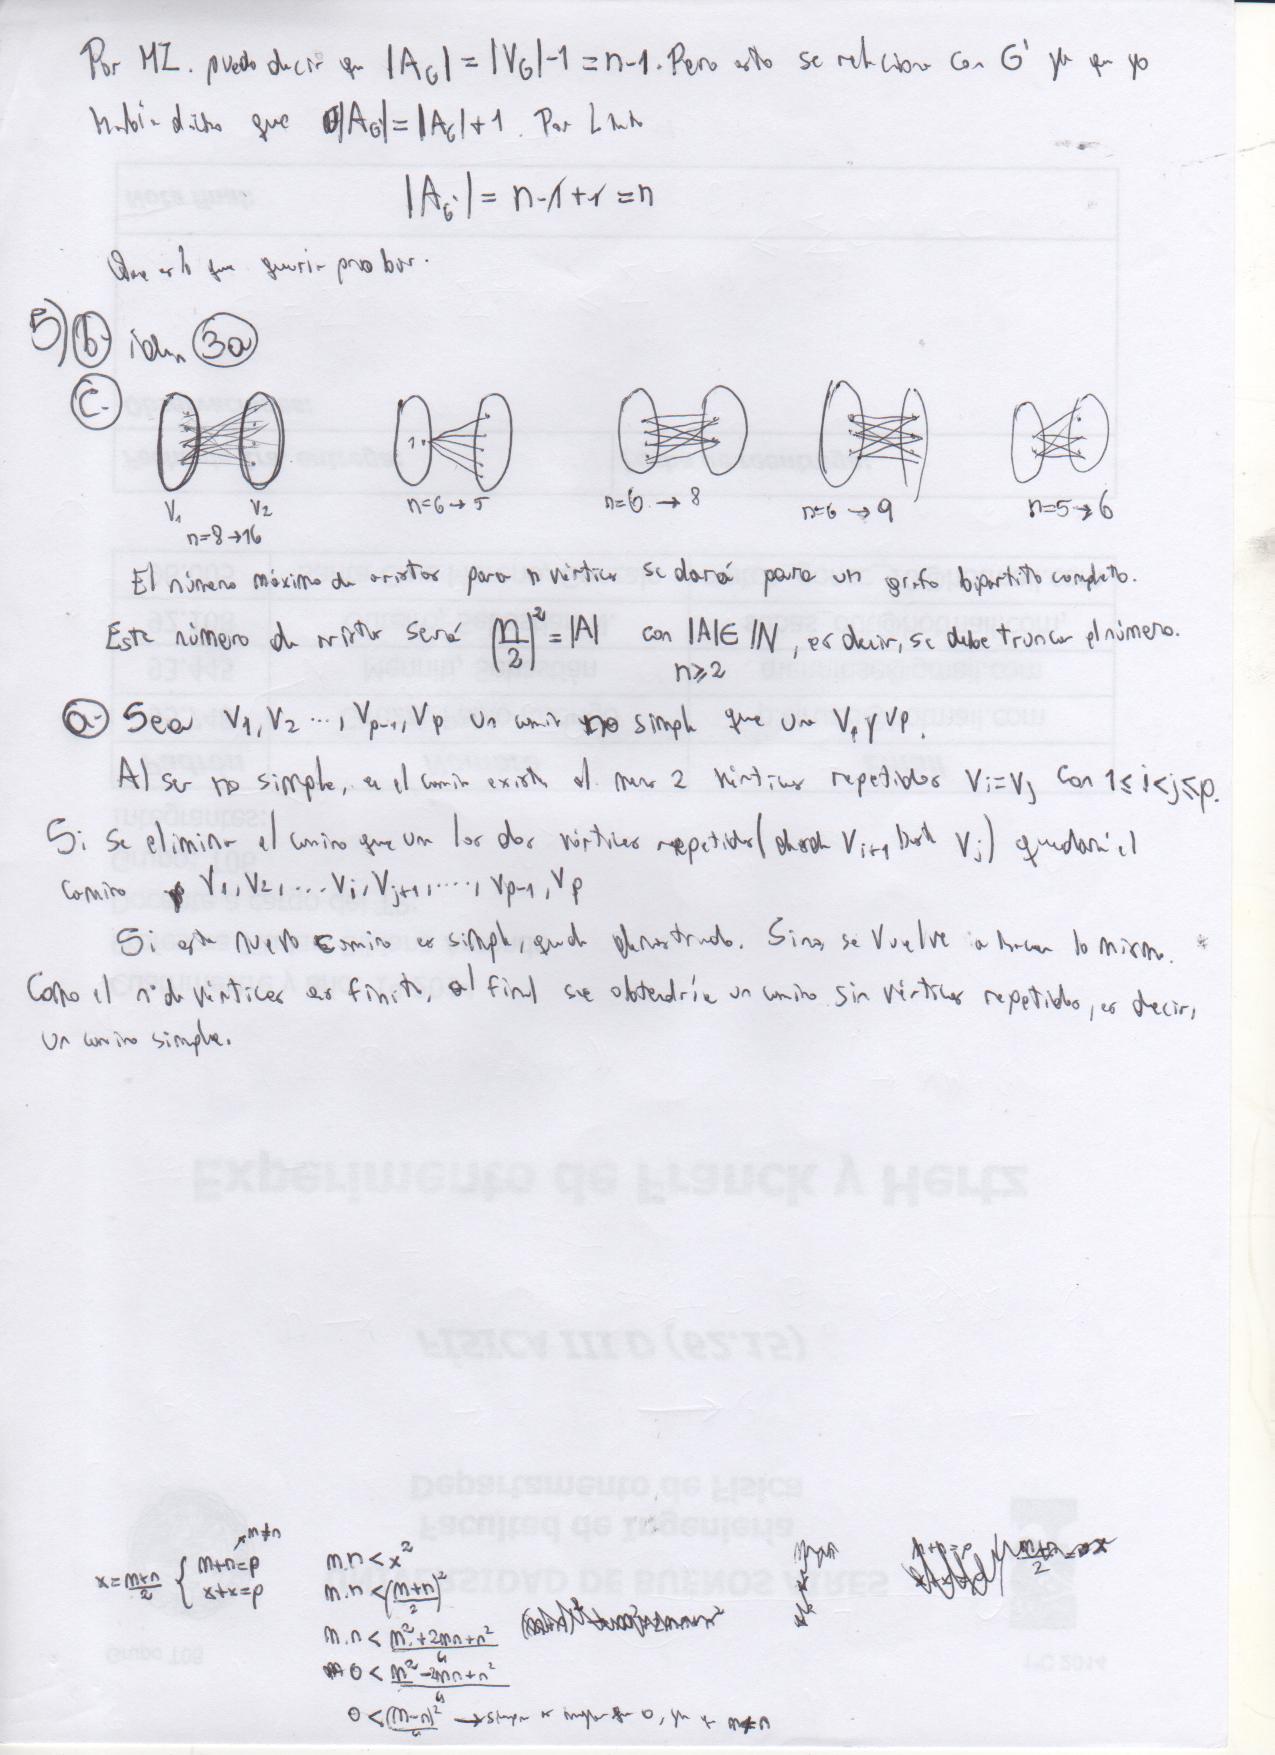 Por HI. puedo decir que |A_G| = |V_G| - 1 = n-1. Pero esto se relaciona con G' ya que yo
había dicho que |A_G'| = |A_G| + 1. Por tanto
|A_G'| = n-1+1 = n
Que es lo que quería probar.
5) b- idem 3a
c.
V1 V2
n=8→16
n=6→5
n=6→8
n=6→9
n=5→6
El número máximo de aristas para n vértices se dará para un grafo bipartito completo.
Este número de aristas será (n/2)^2 = |A| con |A| ∈ IN, es decir, se debe truncar el número.
n≥2
a- Sea V1, V2 ..., Vp-1, Vp un camino no simple que une V1 y Vp.
Al ser no simple, en el camino existen al menos 2 vértices repetidos Vi=Vj con 1≤i<j≤p.
Si se elimina el camino que une los dos vértices repetidos (desde Vi+1 hasta Vj) quedará el
camino V1, V2, ... Vi, Vj+1, ...., Vp-1, Vp
Si este nuevo camino es simple, queda demostrado. Sino, se vuelve a hacer lo mismo.
Como el n° de vértices es finito, al final se obtendría un camino sin vértices repetidos, es decir,
un camino simple.
Experimento de Franck y Hertz
FÍSICA III D (62.15)
Departamento de Física
Facultad de Ingeniería
UNIVERSIDAD DE BUENOS AIRES
m≠n
x = m+n/2 { m+n=p
x+x=p
m.n < x^2
m.n < (m+n/2)^2
m.n < m^2+2mn+n^2/4
0 < m^2-2mn+n^2/4
0 < (m-n)^2/4 → siempre es mayor que 0, ya que m≠n